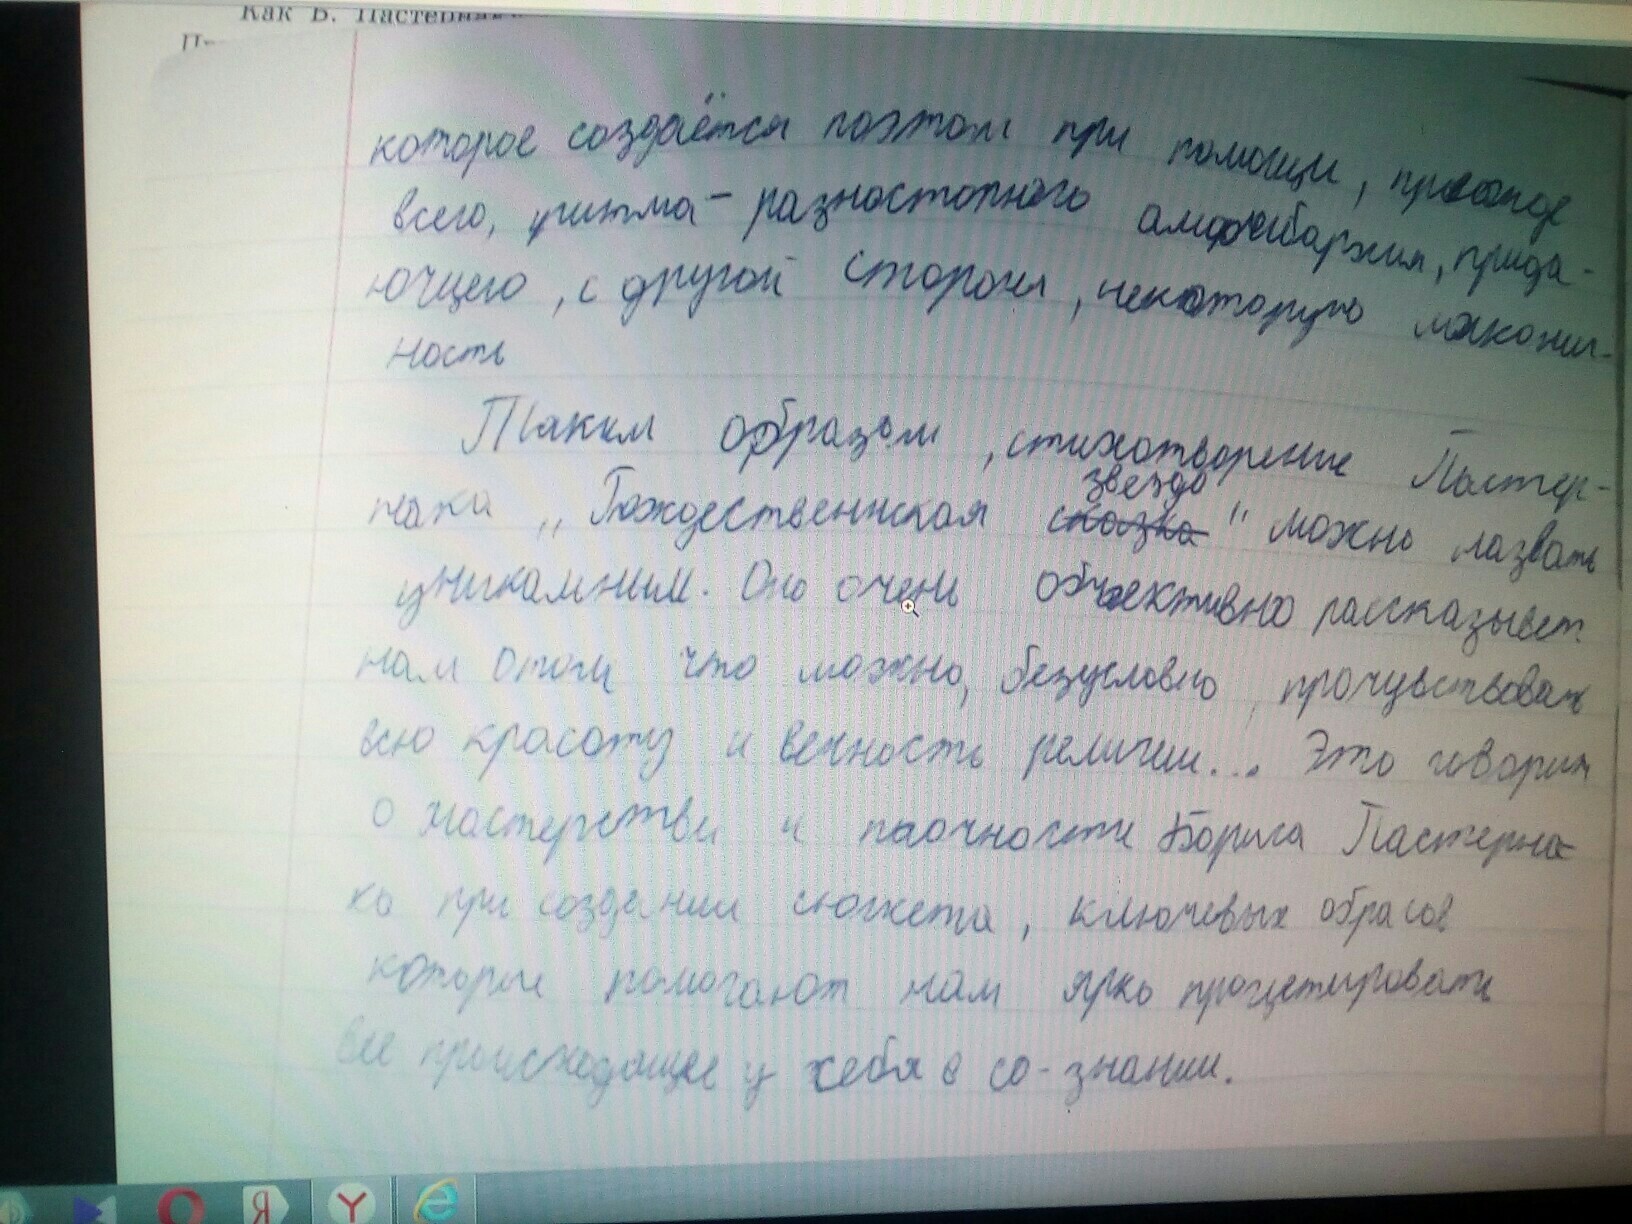 Как Б. Пастернак
которое создаётся поэтом при помощи, прежде
всего, ритма – разностопного амфибрахия, прида-
ющего, с другой стороны, некоторую лаконич-
ность
Таким образом, стихотворение Пастер-
нака „Рождественнская звезда" можно назвать
уникальным. Оно очень объективно рассказывет
нам отом что можно, безусловно, прочувствовать
всю красоту и вечность религии... Это говорит
о мастерстве и Бориса Пастерна
ка при создании сюжета, ключевых обрасов
которые помогают нам ярко процетировать
все происходящее у себя в со-знании.